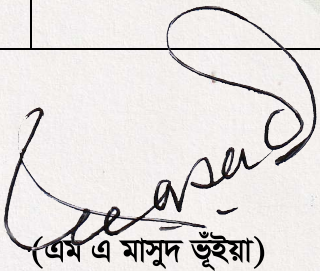 (এম এ মাসুদ ভূঁইয়া)